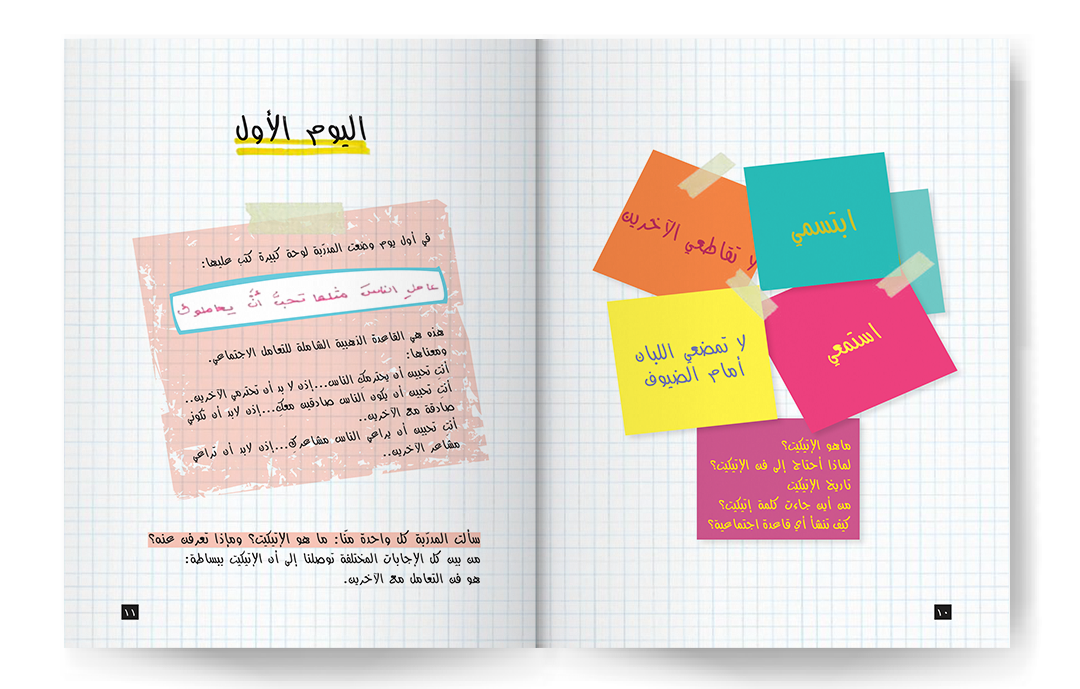 لا تقاطعي الآخرين
ابتسمي
لا تمضعي اللبان
أمام الضيوف
استمعي
ماهو الإتيكيت؟
لماذا أحتاج إلى فن الإتيكيت؟
تاريخ الإتيكيت
من أين جاءت كلمة إتيكيت؟
كيف تنشأ أي قاعدة اجتماعية؟
١٠
اليوم الأول
في أول يوم وضعت المدرّبة لوحة كبيرة كتب عليها:
عامل الناسَ مثلما تحبُّ أنْ يعاملوك
هذه هي القاعدة الذهبية الشاملة للتعامل الاجتماعي.
ومعناها:
أنتِ تحبين أن يحترمك الناس...إذن لا بد أن تحترمي الآخرين..
أنتِ تحبين أن يكون الناس صادقين معكِ...إذن لابد أن تكوني
صادقة مع الآخرين..
أنتِ تحبين أن يراعي الناس مشاعركِ...إذن لابد أن تراعي
مشاعر الآخرين..
سألت المدرّبة كل واحدة منّا: ما هو الإتيكيت؟ وماذا تعرفن عنه؟
من بين كل الإجابات المختلفة توصلنا إلى أن الإتيكيت ببساطة:
هو فن التعامل مع الآخرين.
١١